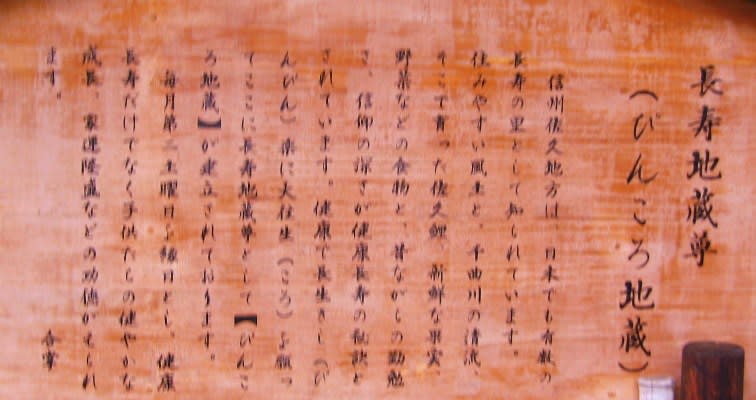 長寿地蔵尊
(ぴんころ地蔵)
信州佐久地方は、日本でも有数の
長寿の里として知られています。
住みやすい風土と、千曲川の清流、
そこで育った佐久鯉、新鮮な果実、
野菜などの食物と、昔ながらの勤勉
さ、信仰の深さが健康長寿の秘訣と
されています。健康で長生きし(ぴ
んぴん)楽に大往生(ころ)を願っ
てここに長寿地蔵尊として【ぴんこ
ろ地蔵】が建立されております。
毎月第二土曜日を縁日とし、健康
長寿だけでなく子供たちの健やかな
成長、家運隆盛などの功徳がえられ
ます。
合掌